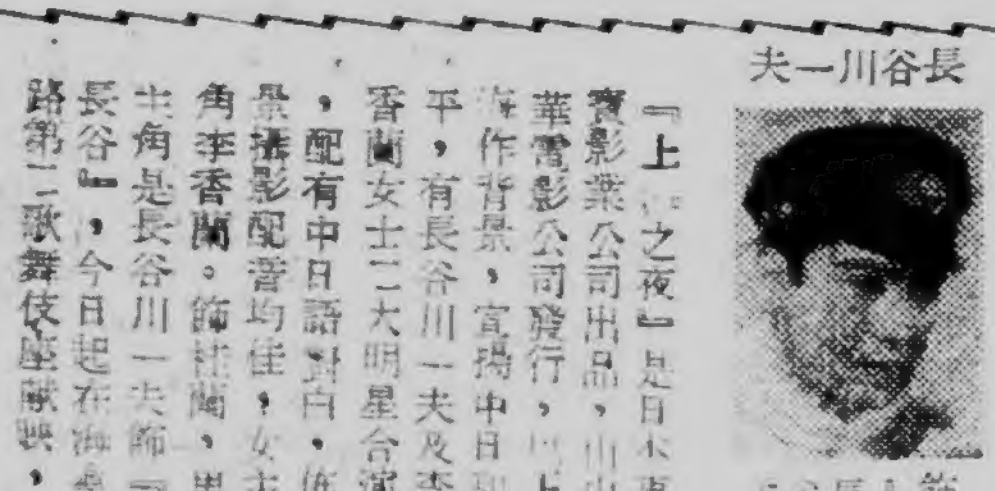 長谷川一夫
『上 之夜』是日本東
寶影業公司出品,由中
華電影公司發行,以上
海作背景,宣揚中日和
平,有長谷川一夫及李
香蘭女士二大明星合演
,配有中日語對白,
景攝影配音均佳,女主
角李香蘭。飾桂蘭,男
主角是長谷川一夫飾『
長谷』,今日起在海
路第二歌舞伎座献映,